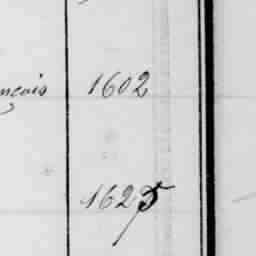 nçois 1602
1625